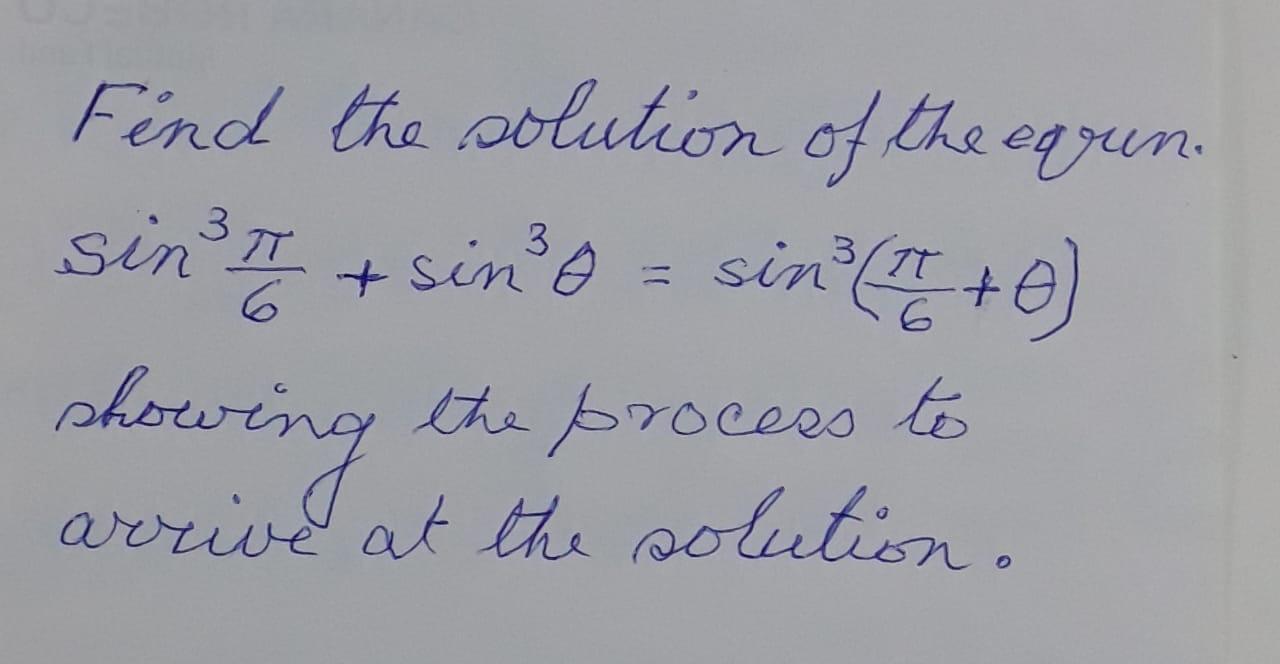 Find the solution of the eqrun.
sin³ π/6 + sin³θ = sin³(π/6 + θ)
showing the process to
arrive at the solution.